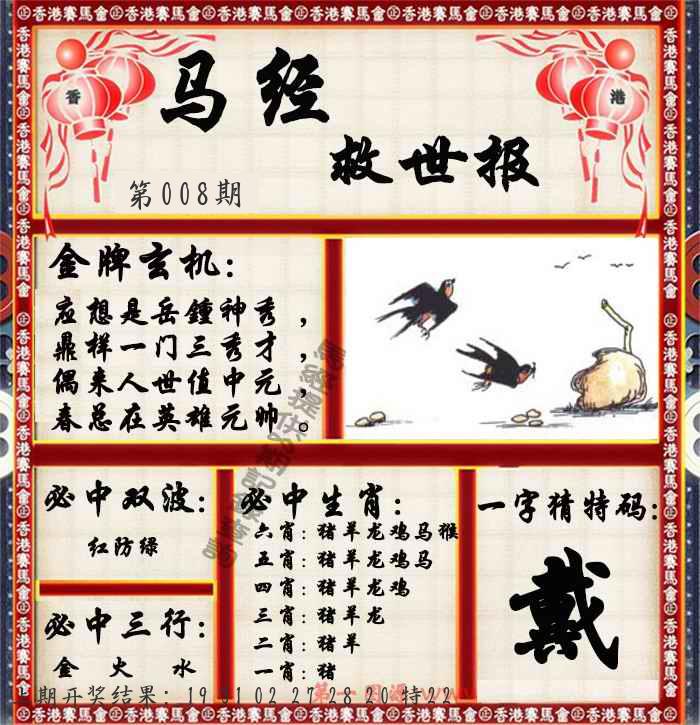 香港賽馬會
香 港
马经
救世报
第008期
金牌玄机:
应想是岳鍾神秀，
鼎样一门三秀才，
偶来人世值中元，
春总在英雄元帅。
必中双波:
红防绿
必中三行:
金 火 水
必中生肖:
六肖: 猪羊龙鸡马猴
五肖: 猪羊龙鸡马
四肖: 猪羊龙鸡
三肖: 猪羊龙
二肖: 猪羊
一肖: 猪
一字猜特码:
戴
期开奖结果: 19 31 02 27 28 20 特22